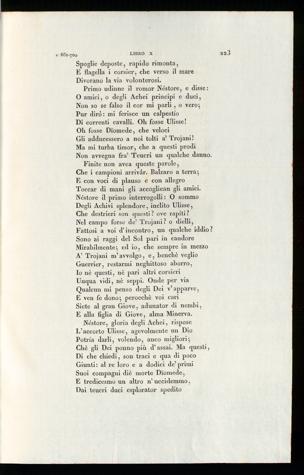 LIBRO X 223
Spoglie deposte, rapido rimonta,
E flagella i corsier, che verso il mare
Divorano la via volonterosi.
Primo udinne il romor Néstore, e disse:
O amici, o degli Achei principi e duci,
Non so se falso il cor mi parli, o vero;
Pur dirò: mi ferisce un calpestio
Di correnti cavalli. Oh fosse Ulisse!
Oh fosse Diomede, che veloci
Gli adducessero a noi tolti a' Trojani!
Ma mi turba timor, che a questi prodi
Non avvegna fra' Teucri un qualche danno.
Finite non avea queste parole,
Che i campioni arrivâr. Balzaro a terra;
E con voci di plauso e con allegro
Toccar di mani gli accogliean gli amici.
Néstore il primo interrogolli: O sommo
Degli Achivi splendore, inclito Ulisse,
Che destrieri son questi? ove rapiti?
Nel campo forse de' Trojani? o dielli,
Fattosi a voi d'incontro, un qualche iddio?
Sono ai raggi del Sol pari in candore
Mirabilmente; ed io, che sempre in mezzo
A' Trojani m'avvolgo, e, benchè veglio
Guerrier, restarmi neghittoso aborro,
Io nè questi, nè pari altri corsieri
Unqua vidi, nè seppi. Onde per via
Qualcun mi penso degli Dei v'apparve,
E ven fe dono; perocchè voi cari
Siete al gran Giove, adunator di nembi,
E alla figlia di Giove, alma Minerva.
Néstore, gloria degli Achei, rispose
L'accorto Ulisse, agevolmente un Dio
Potria darli, volendo, anco migliori;
Chè gli Dei ponno più d'assai. Ma questi,
Di che chiedi, son traci e qua di poco
Giunti: al re loro e a dodici de' primi
Suoi compagni diè morte Diomede,
E tredicesmo un altro n'uccidemmo
Dai teucri duci esplorator spedito